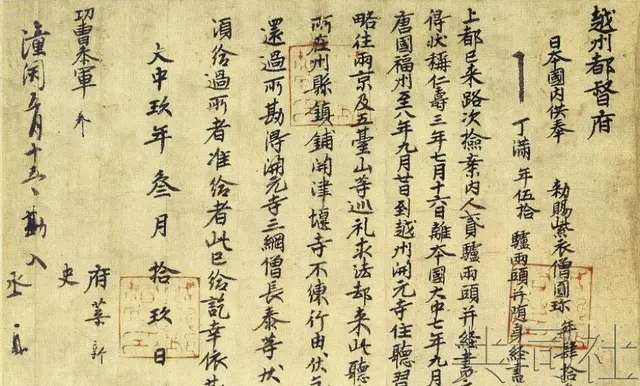 越州都督府
日本國內供奉 勅賜紫衣僧圓珎 年肆拾
丁滿年伍拾 驢兩頭并随身經書
上都已來路次撿案內人貳驢兩頭并經書
得狀稱仁壽三年七月十六日離本國大中七年九月
唐國福州至八年九月廿日到越州開元寺住聽習
略往兩京及五臺山等巡礼求法却來此聽
所在州縣鎮鋪關津堰寺不練行由伏乞
還過所勘得開元寺三綱僧長泰等狀
須給過所者准給者此已給訖幸依
大中玖年叁月拾玖日
府葉新
功曹參軍
史
潼關五月十五日勘入
丞
共同社